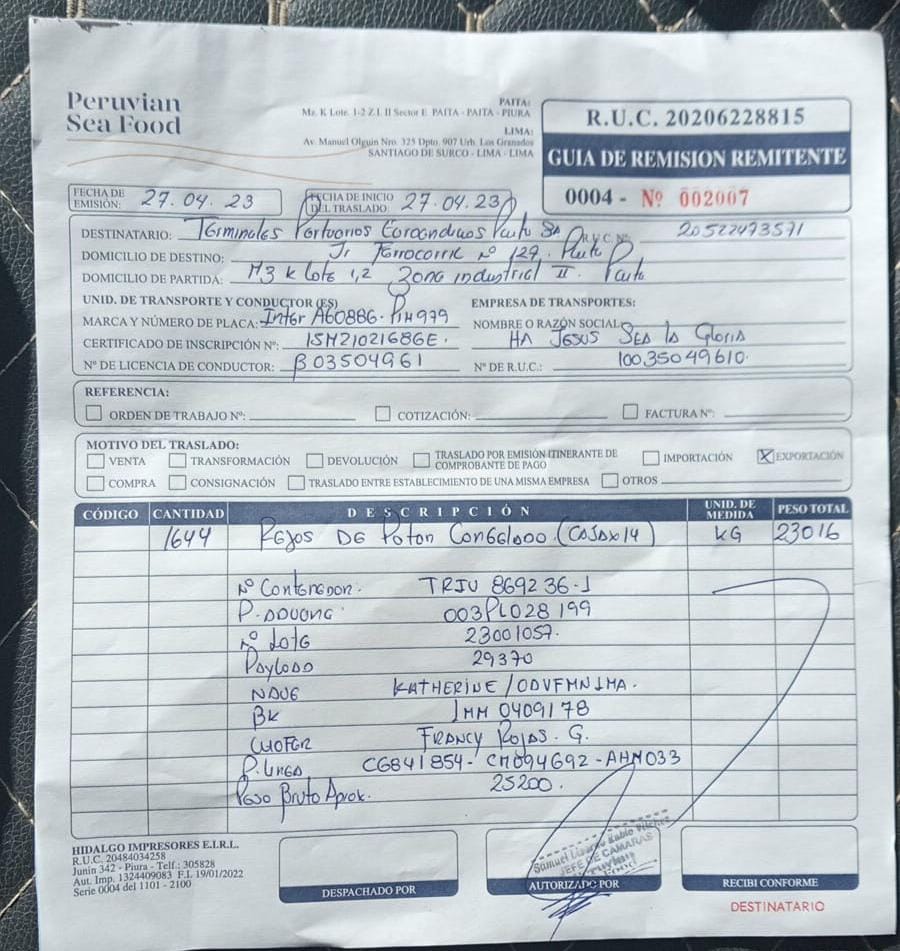 Peruvian
Sea Food
PAITA:
Mz. K Lote. 1-2 Z.I. II Sector E. PAITA - PAITA - PIURA
LIMA:
Av. Manuel Olguin Nro. 325 Dpto. 907 Urb. Los Granados
SANTIAGO DE SURCO - LIMA - LIMA
R.U.C. 20206228815
GUIA DE REMISION REMITENTE
0004 - Nº 002007
FECHA DE EMISIÓN: 27.04.23
FECHA DE INICIO DEL TRASLADO: 27.04.23
DESTINATARIO: Terminales Portuarios Euroandinos Paita SA R.U.C. Nº: 20522473571
DOMICILIO DE DESTINO: Jr Ferrocarril Nº 129. Paita
DOMICILIO DE PARTIDA: M3 K Lote 1,2 Zona industrial II. Paita
UNID. DE TRANSPORTE Y CONDUCTOR (ES) EMPRESA DE TRANSPORTES:
MARCA Y NÚMERO DE PLACA: Inter A60886. PIH979 NOMBRE O RAZÓN SOCIAL: HA JESUS SEA la GlorIA
CERTIFICADO DE INSCRIPCIÓN Nº: 15M2102168GE.
Nº DE LICENCIA DE CONDUCTOR: B03504961 Nº DE R.U.C.: 10035049610.
REFERENCIA:
ORDEN DE TRABAJO Nº: COTIZACIÓN: FACTURA Nº:
MOTIVO DEL TRASLADO:
VENTA TRANSFORMACIÓN DEVOLUCIÓN TRASLADO POR EMISIÓN ITINERANTE DE COMPROBANTE DE PAGO IMPORTACIÓN X EXPORTACIÓN
COMPRA CONSIGNACIÓN TRASLADO ENTRE ESTABLECIMIENTO DE UNA MISMA EMPRESA OTROS
CÓDIGO CANTIDAD DESCRIPCIÓN UNID. DE MEDIDA PESO TOTAL
1644 Rejos DE Poton Congelado (CAJAx14) KG 23016
Nº Contenedor: TRIU 869236-1
P. ADUANA: 003PL028199
Nº Lote 23001057.
Payload 29370
NAVE KATHERINE /ODVFMN1MA.
BK JMM 0409178
CHOFER FRANCY ROJAS. G.
P. Linea CG841854- CM094692 -AHM033
Peso Bruto Aprox. 25200.
HIDALGO IMPRESORES E.I.R.L.
R.U.C. 20484034258
Junin 342 - Piura - Telf.: 305828
Aut. Imp. 1324409083 F.I. 19/01/2022
Serie 0004 del 1101 - 2100
JEFE DE CAMARAS
DESPACHADO POR AUTORIZADO POR RECIBI CONFORME
DESTINATARIO